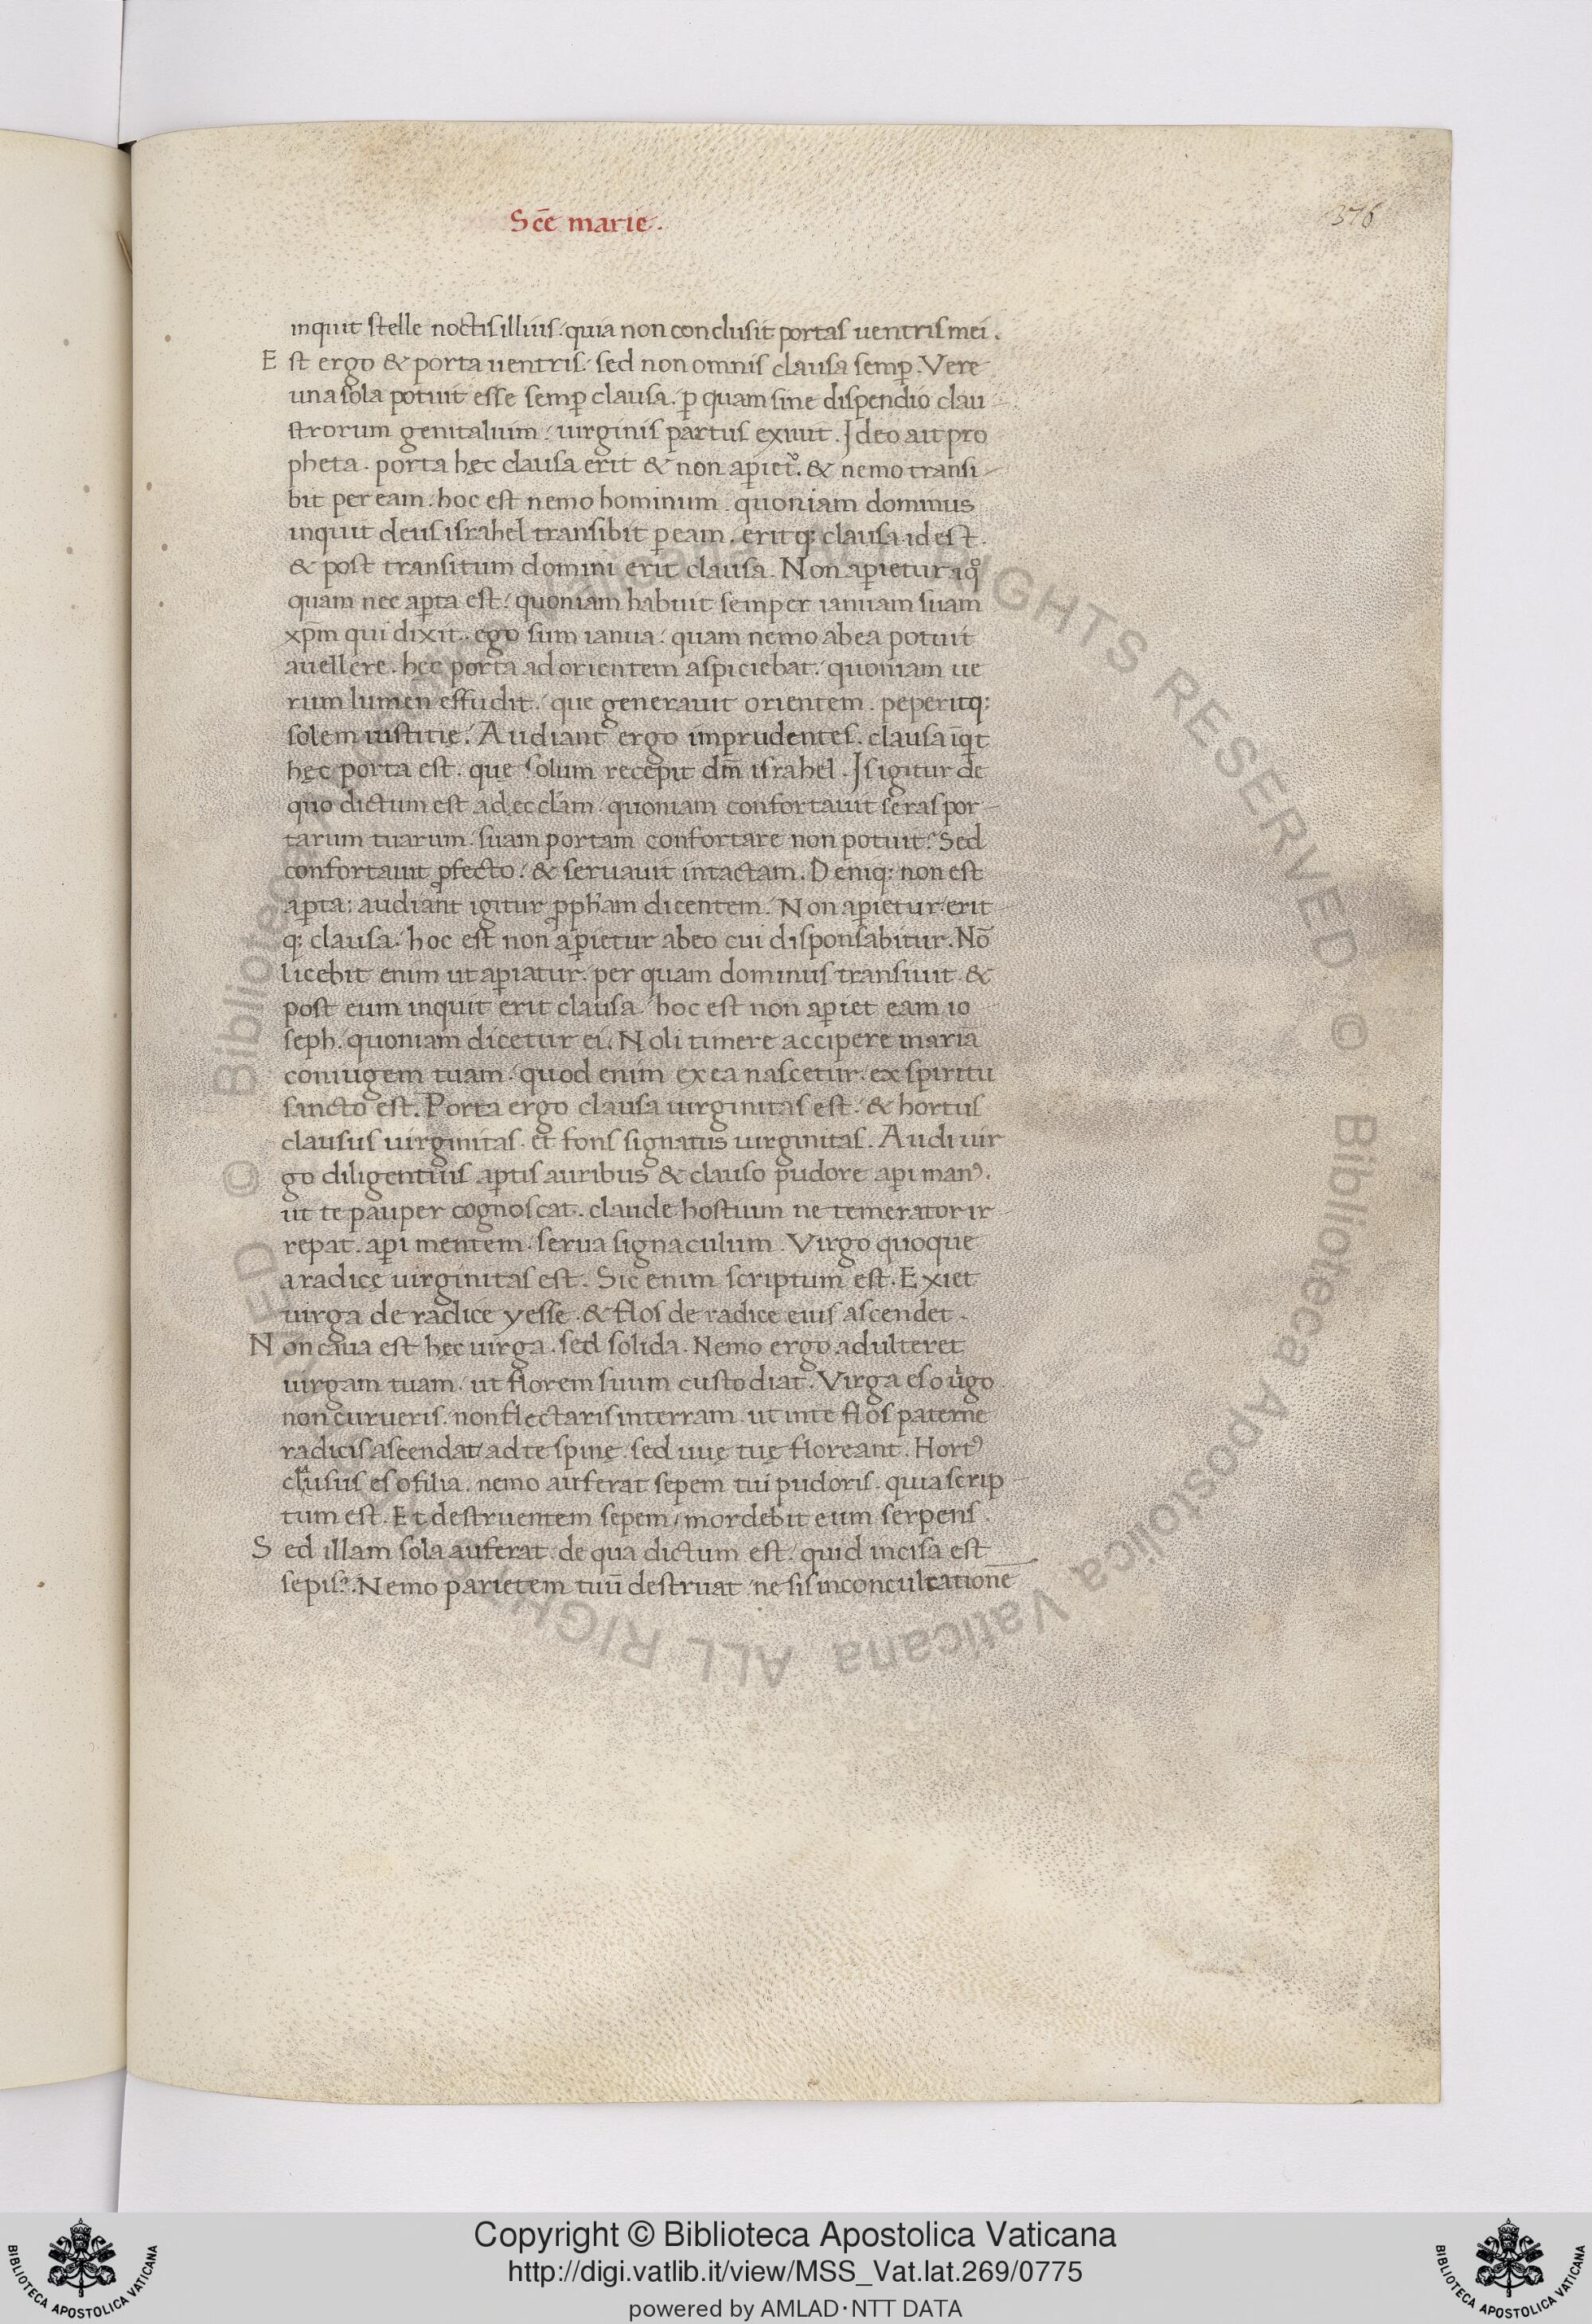 Sc̄e marie.
376
inquit stelle noctis illius. quia non conclusit portas uentris mei.
Est ergo & porta uentris. sed non omnis clausa semꝑ. Vere
una sola potuit esse semꝑ clausa. ꝑ quam sine dispendio clau-
strorum genitalium. uirginis partus exiuit. Ideo ait pro
pheta. porta hęc clausa erit & non aꝑiet᷒. & nemo transi-
bit per eam. hoc est nemo hominum. quoniam dominus
inquit deus israhel transibit ꝑ eam. eritq: clausa. id est.
& post transitum domini erit clausa. Non aꝑietur aq̊
quam nec aꝑta est. quoniam habuit semper ianuam suam
xp̄m qui dixit. ego sum ianua. quam nemo ab ea potuit
auellere. hec porta ad orientem aspiciebat. quoniam ue
rum lumen effudit. que generauit orientem. peperitq:
solem iustitię. Audiant ergo imprudentes. clausa iq̄t
hęc porta est. quę solum recepit dm̄ israhel. Is igitur de
quo dictum est ad ęccl̄am. quoniam confortauit seras por-
tarum tuarum. suam portam confortare non potuit? Sed
confortauit ꝓfecto. & seruauit intactam. Deniq: non est
aꝑta: audiant igitur ꝓph̄am dicentem. Non aꝑietur. erit
q: clausa. hoc est non aꝑietur ab eo cui disponsabitur. Nō
licebit enim ut aꝑiatur. per quam dominus transiuit. &
post eum inquit erit clausa. hoc est non aꝑiet eam io
seph. quoniam dicetur ei. Noli timere accipere maria
coniugem tuam. quod enim ex ea nascetur. ex spiritu
sancto est. Porta ergo clausa uirginitas est. & hortus
clausus uirginitas. et fons signatus uirginitas. Audi uir
go diligentius aꝑtis auribus & clauso pudore aꝑi manꝰ.
ut te pauper cognoscat. claude hostium ne temerator ir-
repat. aꝑi mentem. serua signaculum. Virgo quoque
a radice uirginitas est. Sic enim scriptum est. Exiet
uirga de radice yesse. & flos de radice eius ascendet.
Non caua est hęc uirga. sed solida. Nemo ergo adulteret
uirgam tuam. ut florem suum custodiat. Virga es o ugͥo
non curueris. non flectaris in terram. ut in te flos paterne
radicis ascendat. ad te spinę. sed uuę tuę floreant. Hortꝰ
clausus es o filia. nemo auferat sepem tui pudoris. quia scrip-
tum est. Et destruentem sepem. mordebit eum serpens.
Sed illam sola auferat. de qua dictum est. quid incisa est
sepis? Nemo parietem tuū destruat. ne sis in conculcationē
Copyright © Biblioteca Apostolica Vaticana
http://digi.vatlib.it/view/MSS_Vat.lat.269/0775
powered by AMLAD·NTT DATA
BIBLIOTECA APOSTOLICA VATICANA
BIBLIOTECA APOSTOLICA VATICANA
© Biblioteca Apostolica Vaticana ALL RIGHTS RESERVED © Biblioteca Apostolica Vaticana ALL RIGHTS RESERVED